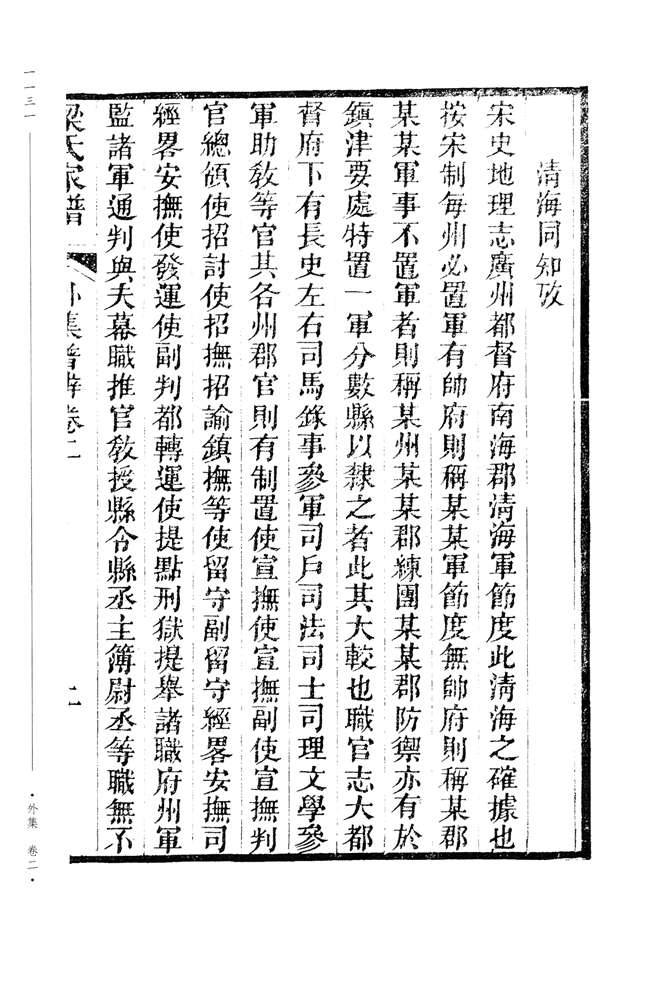 清海同知攷
宋史地理志廣州都督府南海郡清海軍節度此清海之確據也
按宋制每州必置軍有帥府則稱某某軍節度無帥府則稱某郡
某某軍事不置軍者則稱某州某某郡練團某某郡防禦亦有於
鎮津要處特置一軍分數縣以隸之者此其大較也職官志大都
督府下有長史左右司馬錄事參軍司戶司法司士司理文學參
軍助敎等官其各州郡官則有制置使宣撫使宣撫副使宣撫判
官總領使招討使招撫招諭鎮撫等使留守副留守經畧安撫司
經畧安撫使發運使副判都轉運使提點刑獄提舉諸職府州軍
監諸軍通判與夫幕職推官敎授縣令縣丞主簿尉丞等職無不
梁氏家譜 外集普辨卷二 二
一一三一
·外集 卷二·